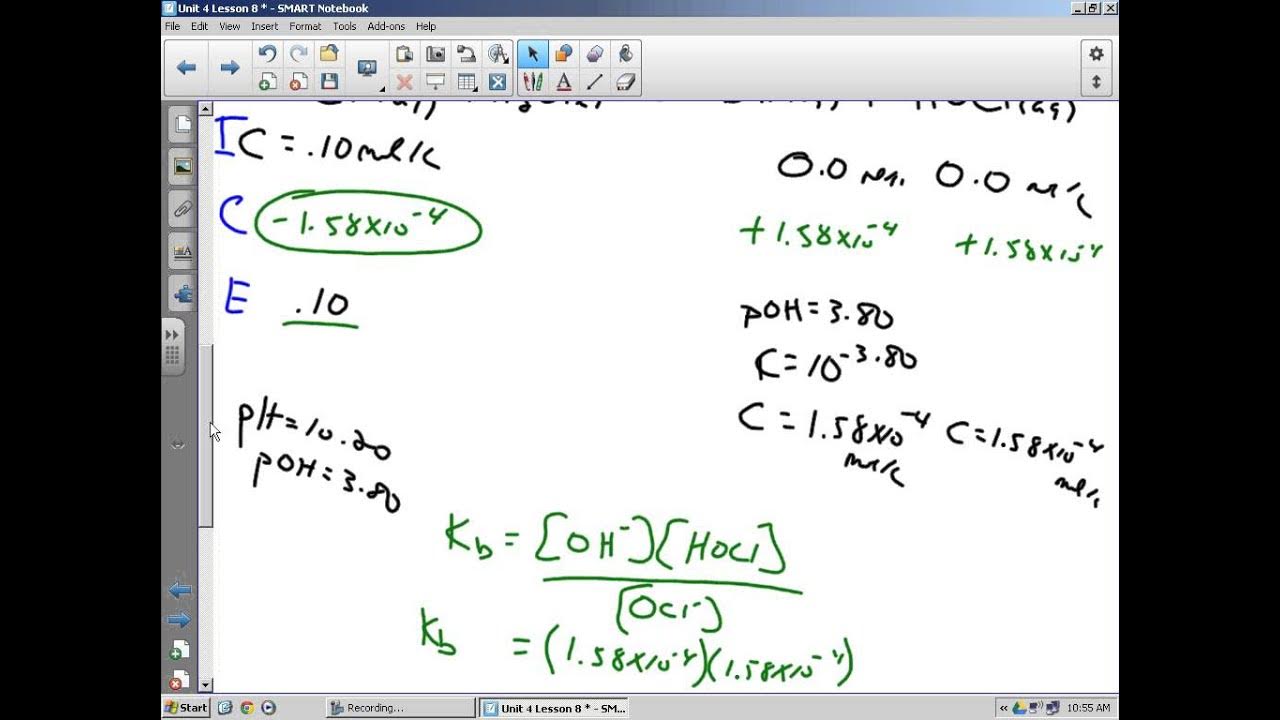 Unit 4 Lesson 8 * - SMART Notebook
File Edit View Insert Format Tools Add-ons Help
I C = .10 mol/L 0.0 0.0
C -1.58x10⁻⁴ +1.58x10⁻⁴ +1.58x10⁻⁴
E .10
pOH = 3.80
C = 10⁻³·⁸⁰
C = 1.58x10⁻⁴ C = 1.58x10⁻⁴
mol/L mol/L
pH = 10.20
pOH = 3.80
Kb = [OH⁻][HOCl]
[OCl⁻]
Kb = (1.58x10⁻⁴)(1.58x10⁻⁴)
Start Recording... Unit 4 Lesson 8 * - SM... « 10:55 AM